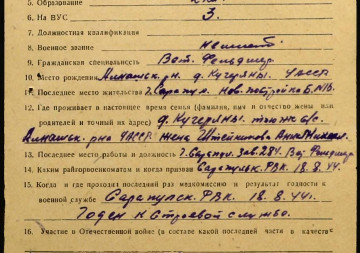 5. Образование
6. На ВУС 3.
7. Должностная квалификация
8. Военное звание
9. Гражданская специальность Вет. Фельдшер
10. Место рождения Алнашск. рн. д. Кучеряны. УАССР
11. Последнее место жительства г. Сарапул.
12. Где проживает в настоящее время семья (фамилия, имя и отчество жены или
родителей и точный их адрес) д. Кучеряны.
Алнашск. рна УАССР. жена Анна
13. Последнее место работы и должность Вет Фельдшер
14. Каким райгорвоенкоматом и когда призван Сарапульск. РВК. 18.8.44.
15. Когда и где проходил последний раз медкомиссию и результат годности к
военной службе Сарапульск. РВК. 18.8.44г.
Годен к строевой службе.
16. Участие в Отечественной войне (в составе какой последней части в качестве